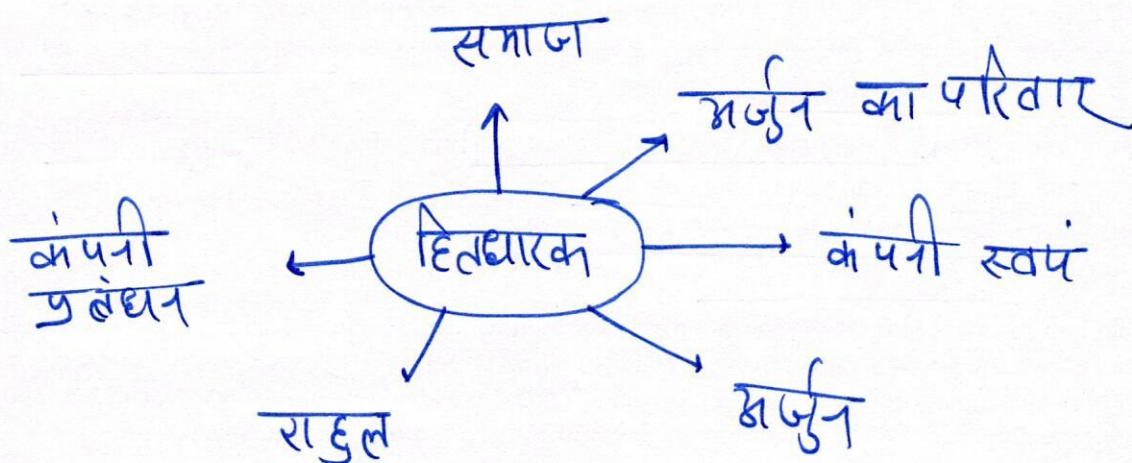 समाज
अर्जुन का परिवार
कंपनी
प्रबंधन
हितधारक
कंपनी स्वयं
राहुल
अर्जुन